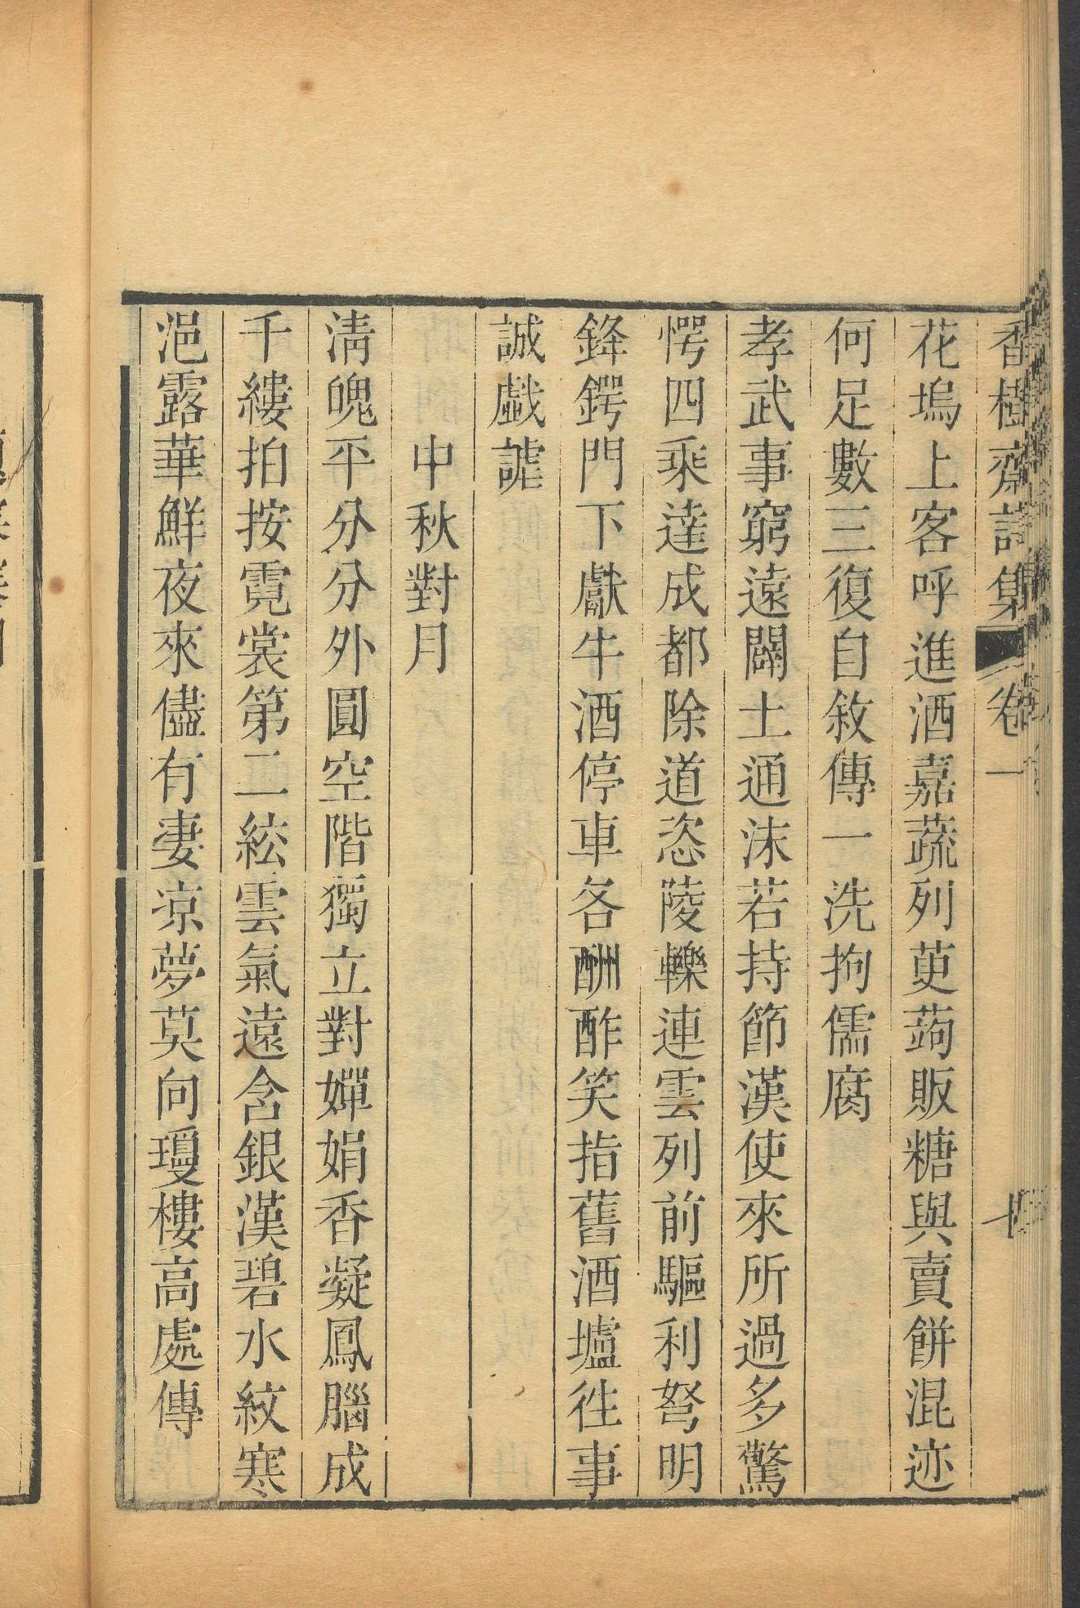 香樹齋詩集 卷一
花塢上客呼進酒嘉蔬列萸蒟販糖與賣餅混迹
何足數三復自敘傳一洗拘儒腐
孝武事窮遠闢土通沫若持節漢使來所過多驚
愕四乘達成都除道恣陵轢連雲列前驅利弩明
鋒鍔門下獻牛酒停車各酬酢笑指舊酒壚徃事
誠戲謔
中秋對月
淸魄平分分外圓空階獨立對嬋娟香凝鳳腦成
千縷拍按霓裳第二絃雲氣遠含銀漢碧水紋寒
浥露華鮮夜來儘有妻凉夢莫向瓊樓高處傳